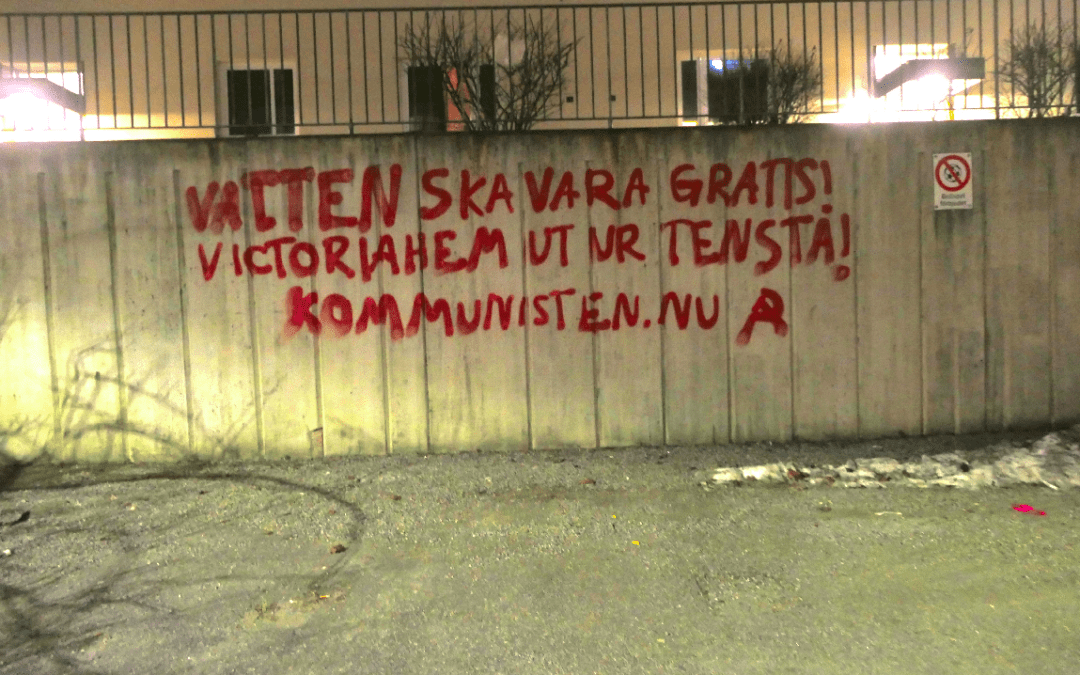 VATTEN SKA VARA GRATIS!
VICTORIAHEM UT UR TENSTA!
KOMMUNISTEN.NU